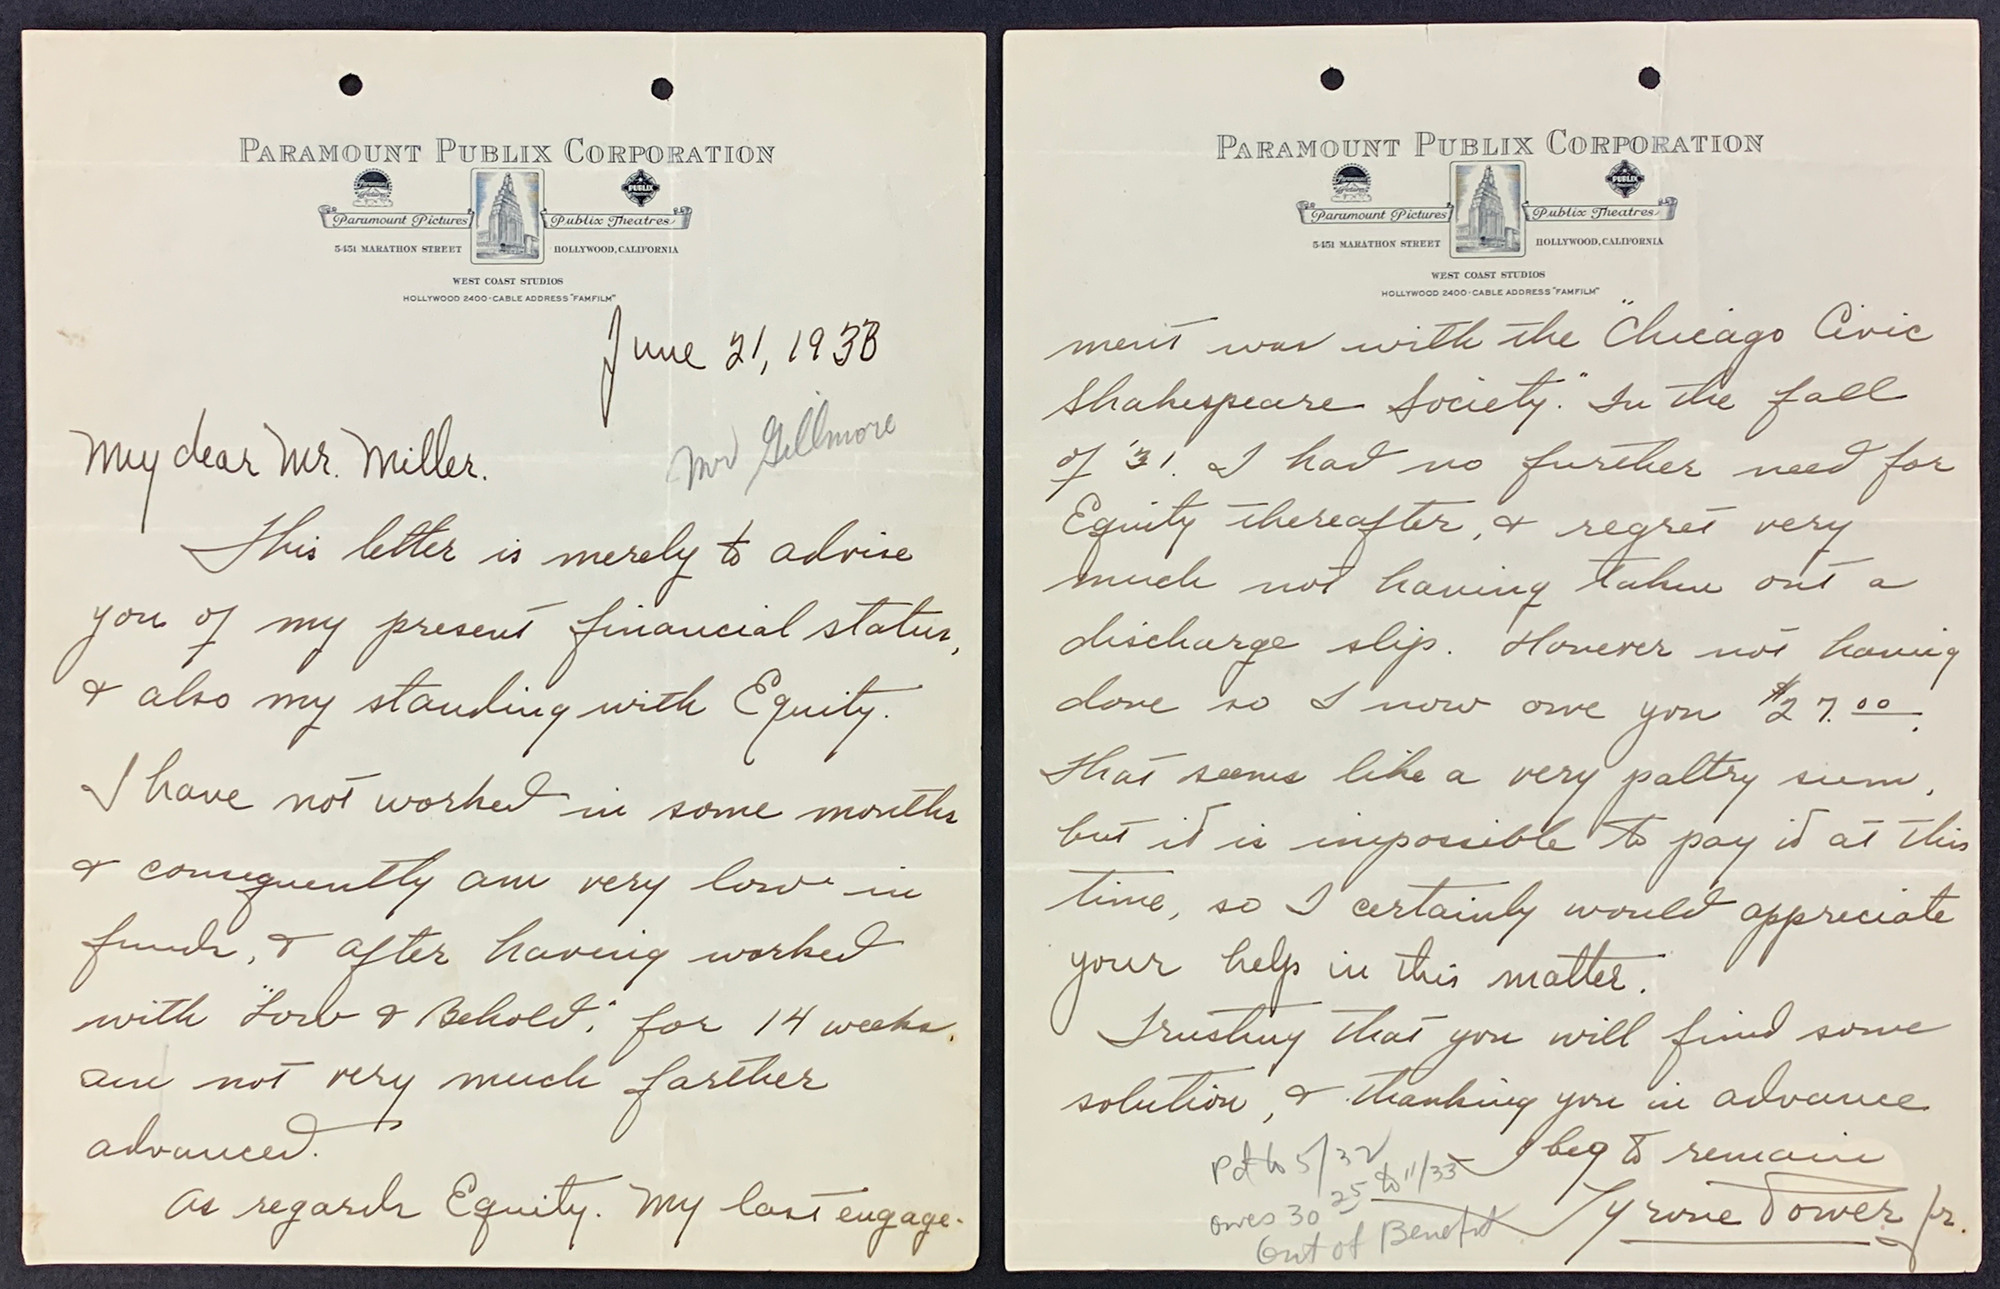 PARAMOUNT PUBLIX CORPORATION
Paramount Pictures
PUBLIX
Paramount Pictures Publix Theatres
5451 MARATHON STREET HOLLYWOOD, CALIFORNIA
WEST COAST STUDIOS
HOLLYWOOD 2400-CABLE ADDRESS "FAMFILM"
June 21, 1933
Mr Gillmore
My dear Mr. Miller.
This letter is merely to advise
you of my present financial status,
& also my standing with Equity.
I have not worked in some months
& consequently am very low in
funds, & after having worked
with "Low & Behold", for 14 weeks.
am not very much farther
advanced.
As regards Equity. My last engage-
PARAMOUNT PUBLIX CORPORATION
Paramount Pictures
PUBLIX
Paramount Pictures Publix Theatres
5451 MARATHON STREET HOLLYWOOD, CALIFORNIA
WEST COAST STUDIOS
HOLLYWOOD 2400-CABLE ADDRESS "FAMFILM"
ment was with the "Chicago Civic
Shakespeare Society." In the fall
of '31. I had no further need for
Equity thereafter, & regret very
much not having taken out a
discharge slip. However not having
done so I now owe you $27.00.
That seems like a very paltry sum,
but it is impossible to pay it at this
time, so I certainly would appreciate
your help in this matter.
Trusting that you will find some
solution, & thanking you in advance
I beg to remain
Tyrone Power Jr.
Pd to 5/32
owes 30 25 to 11/33
Out of Benefit